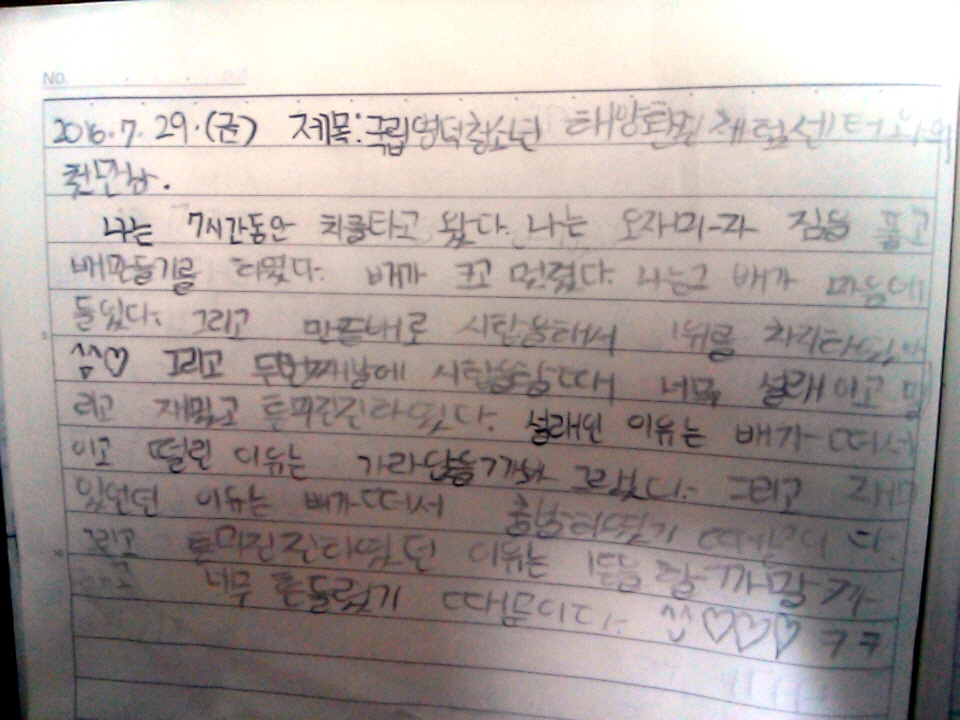 NO.
2016.7.29.(금) 제목:국립영덕청소년 해양환경체험센터와의
첫만남.
나는 7시간동안 차를타고 왔다. 나는 오자마자 짐을 풀고
배만들기를 하였다. 배가 크고 멋졌다. 나는그 배가 마음에
들었다. 그리고 만든배로 시합을해서 1위를 차지하였다
^^♡ 그리고 두번째날에 시합을할때 너무 설래이고 떨
리고 재밌고 흥미진진하였다. 설래인 이유는 배가 떠서
이고 떨린 이유는 가라앉을까봐 그랬다. 그리고 재미
있었던 이유는 배가떠서 출발하였기 때문이다.
그리고 흥미진진하였던 이유는 1등을 할까말까
너무 흔들렸기 때문이다. ^^♡♡♡ ㅋㅋ
5
10